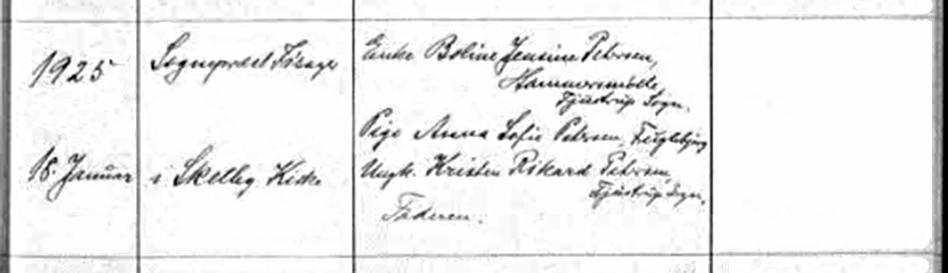 1925
18. Januar
Sognepræst Fisager
i Skelby Kirke
Enke Boline Jensine Petersen,
Hammersmølle,
Fjustrup Sogn.
Pige Anna Sofie Petersen, Fuglebjerg
Ungk. Kristen Rikard Petersen,
Tjustrup Sogn,
Faderen.